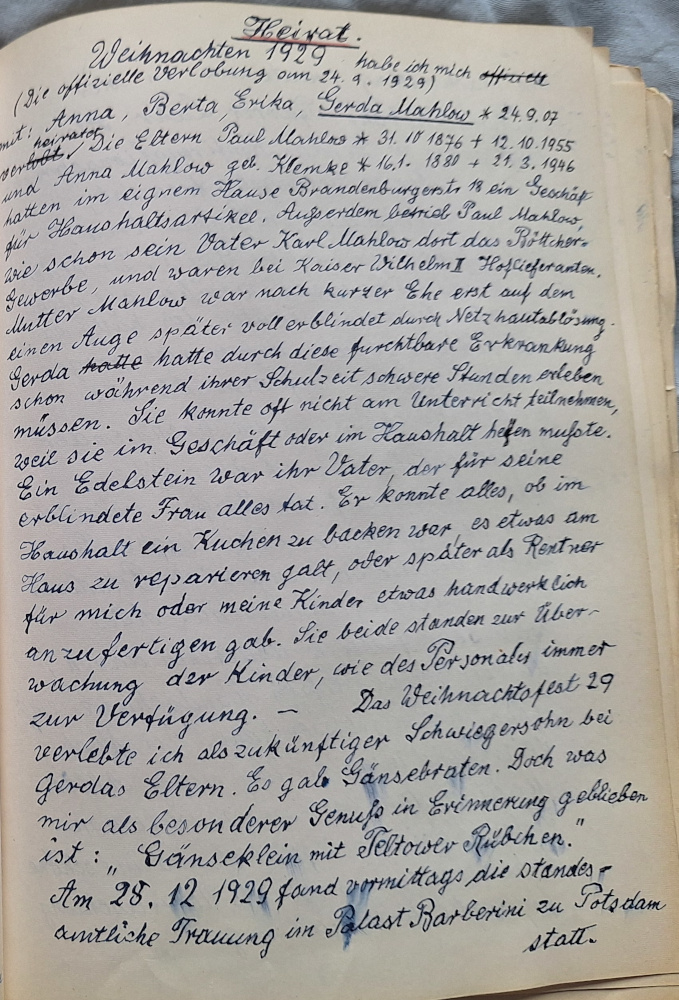 Heirat.
Weihnachten 1929 habe ich mich offiziell
(Die offizielle Verlobung am 24. 9. 1929)
mit: Anna, Berta, Erika, Gerda Mahlow * 24.9.07
verlobt heiratet. Die Eltern Paul Mahlow * 31. 10 1876 + 12.10.1955
und Anna Mahlow geb. Klemke * 16.1. 1880 + 21. 3. 1946
hatten im eignem Hause Brandenburgerstr 18 ein Geschäft
für Haushaltsartikel. Außerdem betrieb Paul Mahlow,
wie schon sein Vater Karl Mahlow dort das Böttcher-
Gewerbe, und waren bei Kaiser Wilhelm II Hoflieferanten.
Mutter Mahlow war nach kurzer Ehe erst auf dem
einen Auge später voll erblindet durch Netzhautablösung.
Gerda hatte hatte durch diese furchtbare Erkrankung
schon während ihrer Schulzeit schwere Stunden erleben
müssen. Sie konnte oft nicht am Unterricht teilnehmen,
weil sie im Geschäft oder im Haushalt helfen mußte.
Ein Edelstein war ihr Vater, der für seine
erblindete Frau alles tat. Er konnte alles, ob im
Haushalt ein Kuchen zu backen war, es etwas am
Haus zu reparieren galt, oder später als Rentner
für mich oder meine Kinder etwas handwerklich
anzufertigen gab. Sie beide standen zur Über-
wachung der Kinder, wie des Personals immer
zur Verfügung. — Das Weihnachtsfest 29
verlebte ich als zukünftiger Schwiegersohn bei
Gerdas Eltern. Es gab Gänsebraten. Doch was
mir als besonderer Genuß in Erinnerung geblieben
ist: „Gänseklein mit Teltower Rübchen."
Am 28. 12 1929 fand vormittags die standes-
amtliche Trauung im Palast Barberini zu Potsdam
statt.